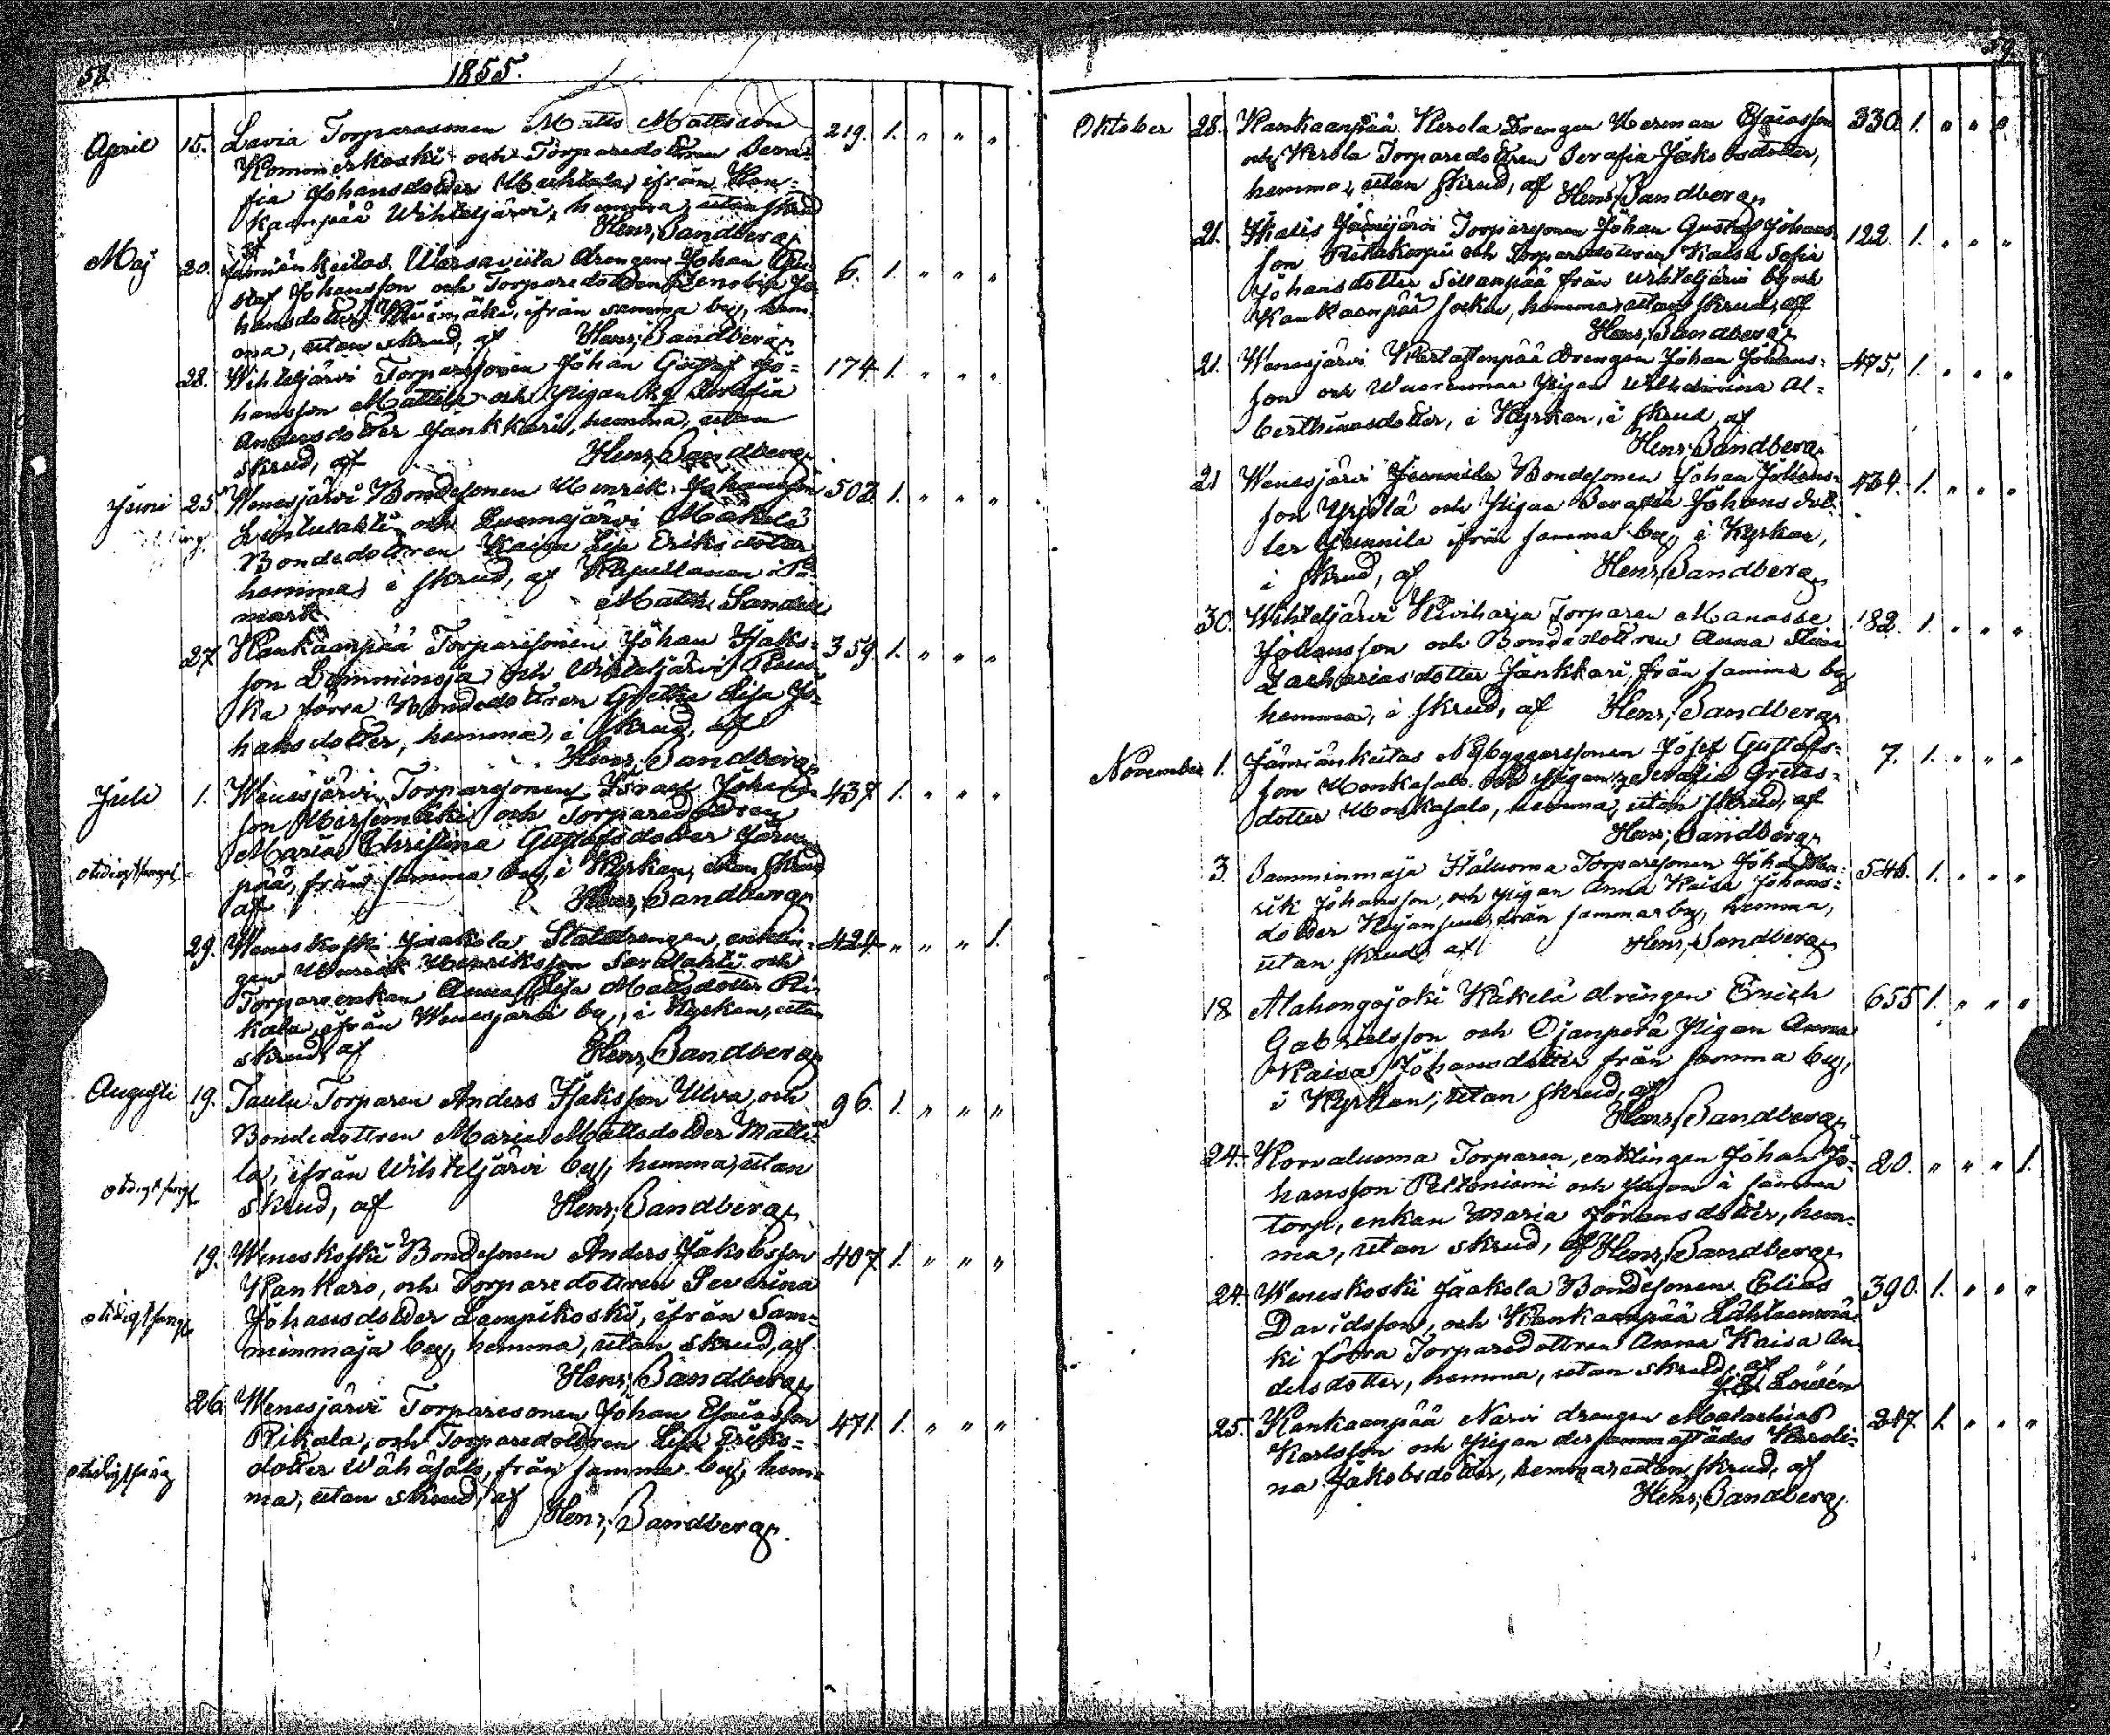 58
1855.
April 15. Lavia Torparesonen Matts Mattsson 219. 1. " " "
Kommerkoski och Torparedottren Sera-
fia Johansdotter ifrån Kan-
kaanpää Wihteljärvi, hemma, utan skrud
af Henr. Sandberg.
Maj 20. Jämiänkeitas drengen Johan Gu- 6. 1. " " "
staf Johansson och Torparedottren Zenobia Jo-
hansdotter ifrån samma by, hem-
ma, utan skrud, af Henr. Sandberg.
28. Wihteljärvi Torparesonen Johan Gustaf Jo- 174 1. " " "
hansson Mattila och Pigan Serafia
Andersdotter Jänkkäri, hemma, utan
skrud, af Henr. Sandberg.
Juni 25. Wenesjärvi Bondesonen Henrik Johansson 503. 1. " " "
Lintulahti och Luomajärvi Mäkelä
Bondedottren Kaisa Lisa Eriksdotter
hemma, i skrud, af Kapellanen i Po-
mark Matth. Sandell
27. Kankaanpää Torparesonen Johan Isaks- 359. 1. " " "
son och Wihteljärvi
ka förra Bondedottren Gretha Lisa Jo-
hansdotter, hemma, i skrud, af
Henr. Sandberg.
Juli 1. Wenesjärvi Torparesonen Israel Johans- 437 1. " " "
son och Torparedottren
Maria Christina Gustafsdotter
pää, från samma by, i Kyrkan, utan skrud
af Henr. Sandberg.
29. Weneskoski Jaakola Staldrengen, enklin- 424. " " " 1.
gen Henrik Henriksson och
Torpareenkan Anna Lisa Mattsdotter Ri-
kala, ifrån Wenesjärvi by, i Kyrkan, utan
skrud, af Henr. Sandberg.
Augusti 19. Taulu Torparen Anders Isaksson Ulva, och 96. 1. " " "
Bondedottren Maria Mattsdotter Matti-
la, ifrån Wihteljärvi by, hemma, utan
skrud, af Henr. Sandberg.
19. Weneskoski Bondesonen Anders Jakobsson 407 1. " " "
Kankaro, och Torparedottren Severina
Johansdotter Lampikoski, ifrån Sam-
minmaja by, hemma, utan skrud, af
Henr. Sandberg.
26. Wenesjärvi Torparesonen Johan Esaiasson 471. 1. " " "
Rikala, och Torparedottren Lisa Eriks-
dotter Wähäsalo, från samma by, hem-
ma, utan skrud, af
Henr. Sandberg.
59.
Oktober 28. Kankaanpää Kerola Drengen Herman Esaiasson 330. 1. " " "
och Kerola Torparedottren Serafia Jakobsdotter,
hemma, utan skrud, af Henr. Sandberg.
21. Ikalis Jämijärvi Torparesonen Johan Gustaf Johans- 122. 1. " " "
son och Torparedottren Kaisa Sofia
Johansdotter Sillanpää från Wihteljärvi by och
Kankaanpää socken, hemma, utan skrud, af
Henr. Sandberg.
21. Wenesjärvi Drengen Johan Johans- 475. 1. " " "
son och Wuorenmaa Pigan Wilhelmina Al-
berthinasdotter, i Kyrkan, i skrud af
Henr. Sandberg.
21 Wenesjärvi Bondesonen Johan Johans- 1. " " "
son Yrjölä och Pigan Serafia Johansdot-
ter ifrån samma by, i Kyrkan,
i skrud, af Henr. Sandberg.
30. Wihteljärvi Kiviharja Torparen Manasse 182. 1. " " "
Johansson och Bondedottren Anna Stina
Zachariasdotter Jänkkäri, från samma by
hemma, i skrud, af Henr. Sandberg.
November 1. Jämiänkeitas Nybyggaresonen Josef Gustafs- 7. 1. " " "
son Honkasalo och Pigan Serafia Gretas-
dotter Honkasalo, hemma, utan skrud, af
Henr. Sandberg.
3. Samminmaja Torparesonen Johan Hen- 546. 1. " " "
rik Johansson, och Pigan Anna Kaisa Johans-
dotter från samma by, hemma,
utan skrud af Henr. Sandberg.
18 Alahongojoki Käkelä drengen Erich 655 1. " " "
Gabrielsson och Ojanperä Pigan Anna
Kaisa Johansdotter från samma by,
i Kyrkan, utan skrud, af
Henr. Sandberg.
24. Korvaluoma Torparen, enklingen Johan Jo- 20. " " " 1.
hansson Peltoniemi och Pigan å samma
torp, enkan Maria Johansdotter, hem-
ma, utan skrud, af Henr. Sandberg.
24. Weneskoski Jaakola Bondesonen Elias 390. 1. " " "
Davidsson, och Kankaanpää Lähteenmä-
ki förra Torparedottren Anna Kaisa An-
dersdotter, hemma, utan skrud, af
Lovén
25. Kankaanpää Narvi drengen Malachias 247 1. " " "
Karlsson och Pigan dersammastädes Karoli-
na Jakobsdotter, hemma, utan skrud, af
Henr. Sandberg.